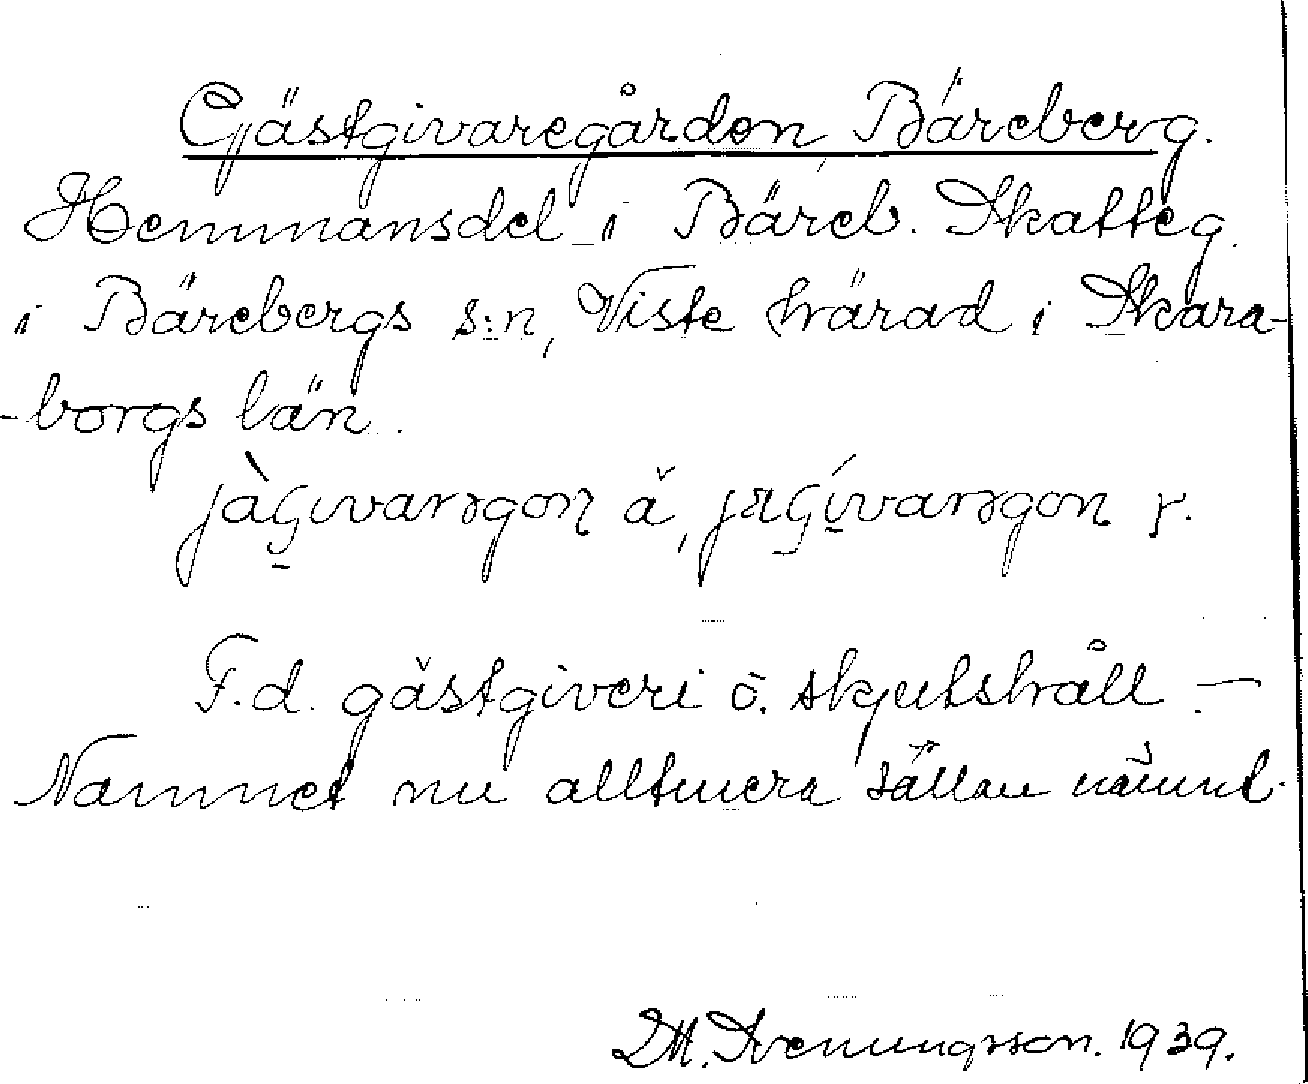 Gästgivaregården, Bäreberg.
Hemmansdel i Bäreb. Skatteg.
i Bärebergs s:n, Viste härad i Skara-
-borgs län.
F.d. gästgiveri o. skjutshåll. —
Namnet nu alltmera sällan nämnt.
M. Svenungsson. 1939.